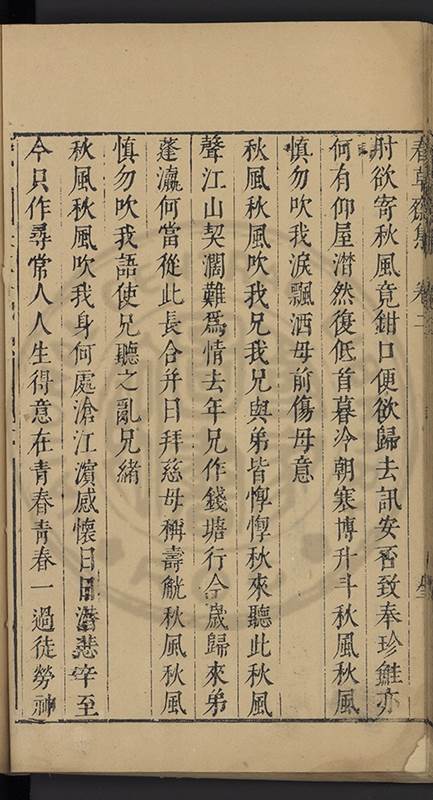 肘欲寄秋風竟鉗口便欲歸去訊安否致奉珍鮭亦
何有仰屋潸然復低首暮泠朝寒博升斗秋風秋風
慎勿吹我淚飄洒母前傷母意
秋風秋風吹我兄我兄與弟皆惸惸秋來聽此秋風
聲江山契濶難爲情去年兄作錢塘行今歲歸來弟
蓬瀛何當從此長合并日拜慈母稱壽觥秋風秋風
慎勿吹我語使兄聽之亂兄緒
秋風秋風吹我身何處滄江濵感懷日日潛悲辛至
今只作尋常人人生得意在青春青春一過徒勞神